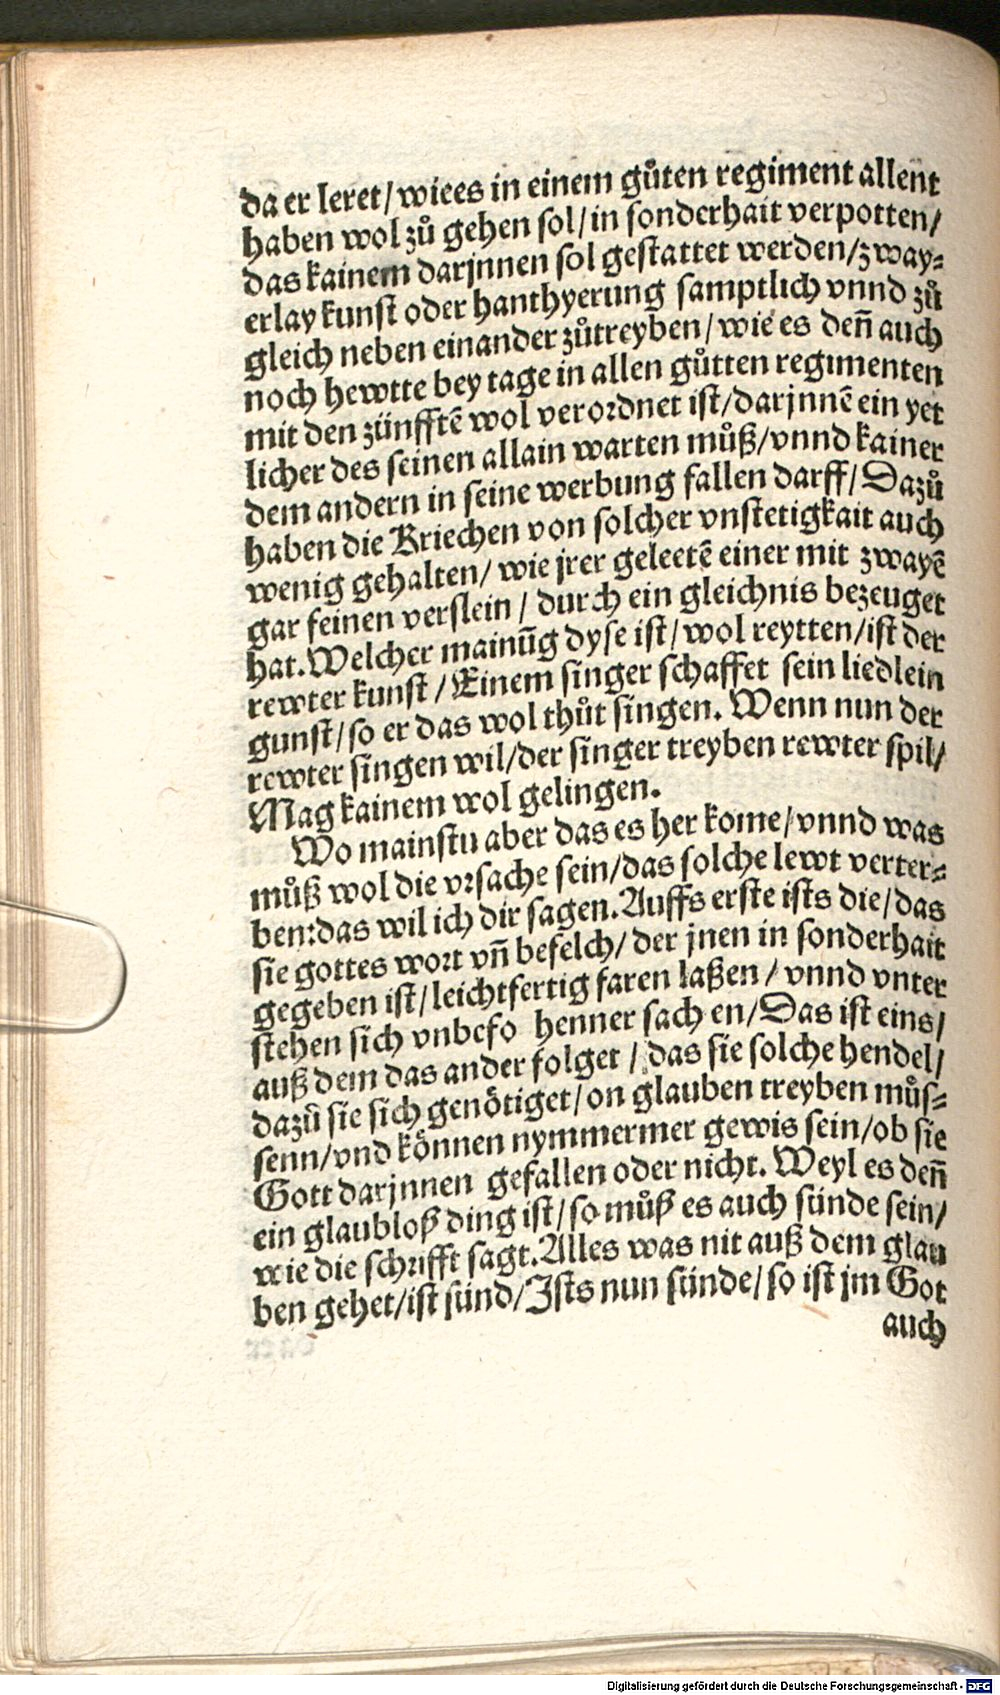 da er leret/ wiees in einem gůten regiment allent
haben wol zů gehen sol/ in sonderhait verpotten/
das kainem darjnnen sol gestattet werden/ zway⸗
erlay kunst oder hanthyerung samptlich vnnd zů
gleich neben einander zůtreyben/ wie es deñ auch
noch hewtte bey tage in allen gůtten regimenten
mit den zünfftẽ wol verordnet ist/ darjnnẽ ein yet
licher des seinen allain warten můß/ vnnd kainer
dem andern in seine werbung fallen darff/ Dazů
haben die Kriechen von solcher vnstetigkait auch
wenig gehalten/ wie jrer geleetẽ einer mit zwayẽ
gar feinen verslein/ durch ein gleichnis bezeuget
hat. Welcher mainũg dyse ist/ wol reytten/ ist der
rewter kunst/ Einem singer schaffet sein liedlein
gunst/ so er das wol thůt singen. Wenn nun der
rewter singen wil/ der singer treyben rewter spil/
Mag kainem wol gelingen.
Wo mainstu aber das es her kome/ vnnd was
můß wol die vrsache sein/ das solche lewt verter⸗
ben: das wil ich dir sagen. Auffs erste ists die/ das
sie gottes wort vñ befelch/ der jnen in sonderhait
gegeben ist/ leichtfertig faren laßen/ vnnd vnter
stehen sich vnbefo henner sach en/ Das ist eins/
auß dem das ander folget/ das sie solche hendel/
dazů sie sich genötiget/ on glauben treyben můs⸗
senn/ vnd können nymmermer gewis sein/ ob sie
Gott darjnnen gefallen oder nicht. Weyl es deñ
ein glaubloß ding ist/ so můß es auch sünde sein/
wie die schrifft sagt. Alles was nit auß dem glau
ben gehet/ ist sünd/ Ists nun sünde/ so ist jm Got
auch
Digitalisierung gefördert durch die Deutsche Forschungsgemeinschaft - DFG